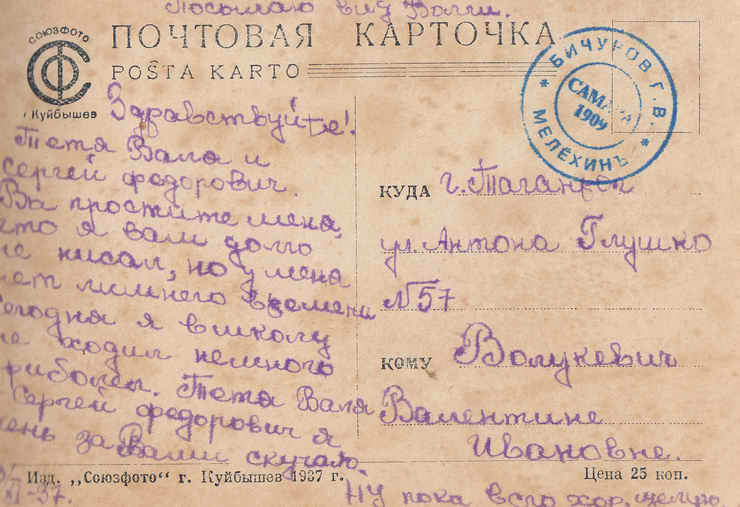 Посылаю вид Волги.
СОЮЗФОТО
СФ
г. Куйбышев
ПОЧТОВАЯ КАРТОЧКА
POŜTA KARTO
БИЧУРОВ Г. В. * МЕЛЁХИНЪ *
САМАРА
1909
Здравствуйте!
Тетя Валя и
Сергей Федорович.
Вы простите меня,
что я вам долго
не писал, но у меня
нет лишнего времени
Сегодня я в школу
не ходил немного
приболел. Тетя Валя
Сергей Федорович я
очень за Вами скучаю.
КУДА г. Таганрог
ул. Антона Глушко
N 57
КОМУ Волукевич
Валентине
Ивановне.
XI-37.
Изд. „Союзфото" г. Куйбышев 1937 г.
Цена 25 коп.
Ну пока всего хор.